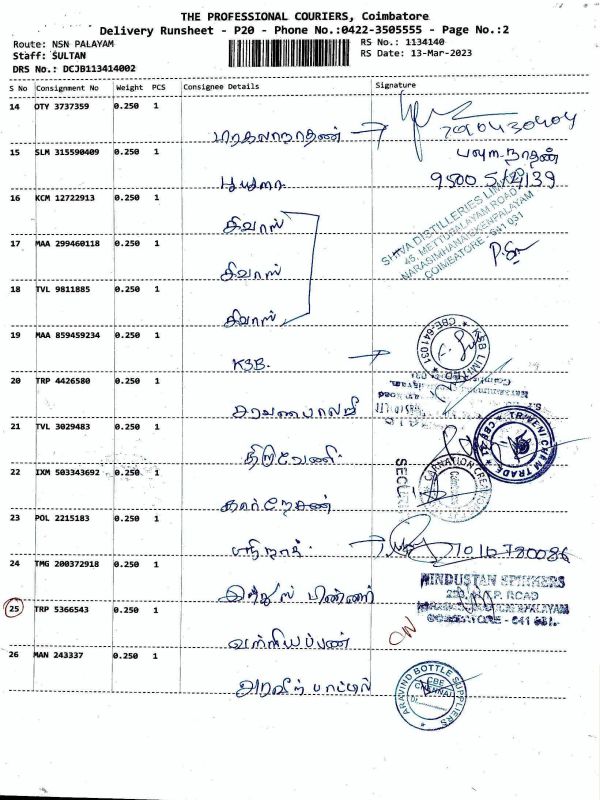 THE PROFESSIONAL COURIERS, Coimbatore
Delivery Runsheet - P20 - Phone No.:0422-3505555 - Page No.:2
Route: NSN PALAYAM
RS No.: 1134140
Staff: SULTAN
RS Date: 13-Mar-2023
DRS No.: DCJB113414002
S No Consignment No Weight PCS Consignee Details Signature
14 OTY 3737359 0.250 1
15 SLM 315590409 0.250 1
16 KCM 12722913 0.250 1
SHIVA DISTILLERIES LIMITED
45, METTUPALAYAM ROAD
NARASIMHANAICKENPALAYAM
COIMBATORE - 641 031
சிவாஸ்
17 MAA 299460118 0.250 1
சிவாஸ்
18 TVL 9811885 0.250 1
சிவாஸ்
19 MAA 859459234 0.250 1
KSB.
KSB LIMITED
CBE-641031
20 TRP 4426580 0.250 1
சரவணபாலாஜி
21 TVL 3029483 0.250 1
திரிவேணி
TRIVENI CHEM TRADE
22 IXM 503343692 0.250 1
CARNATION CREATIONS
23 POL 2215183 0.250 1
24 TMG 200372918 0.250 1
HINDUSTAN SPINNERS
25 TRP 5366543 0.250 1
COIMBATORE - 641 031.
26 MAN 243337 0.250 1
அரவிந் பாட்டில்
ARAVIND BOTTLE SUPPLIERS